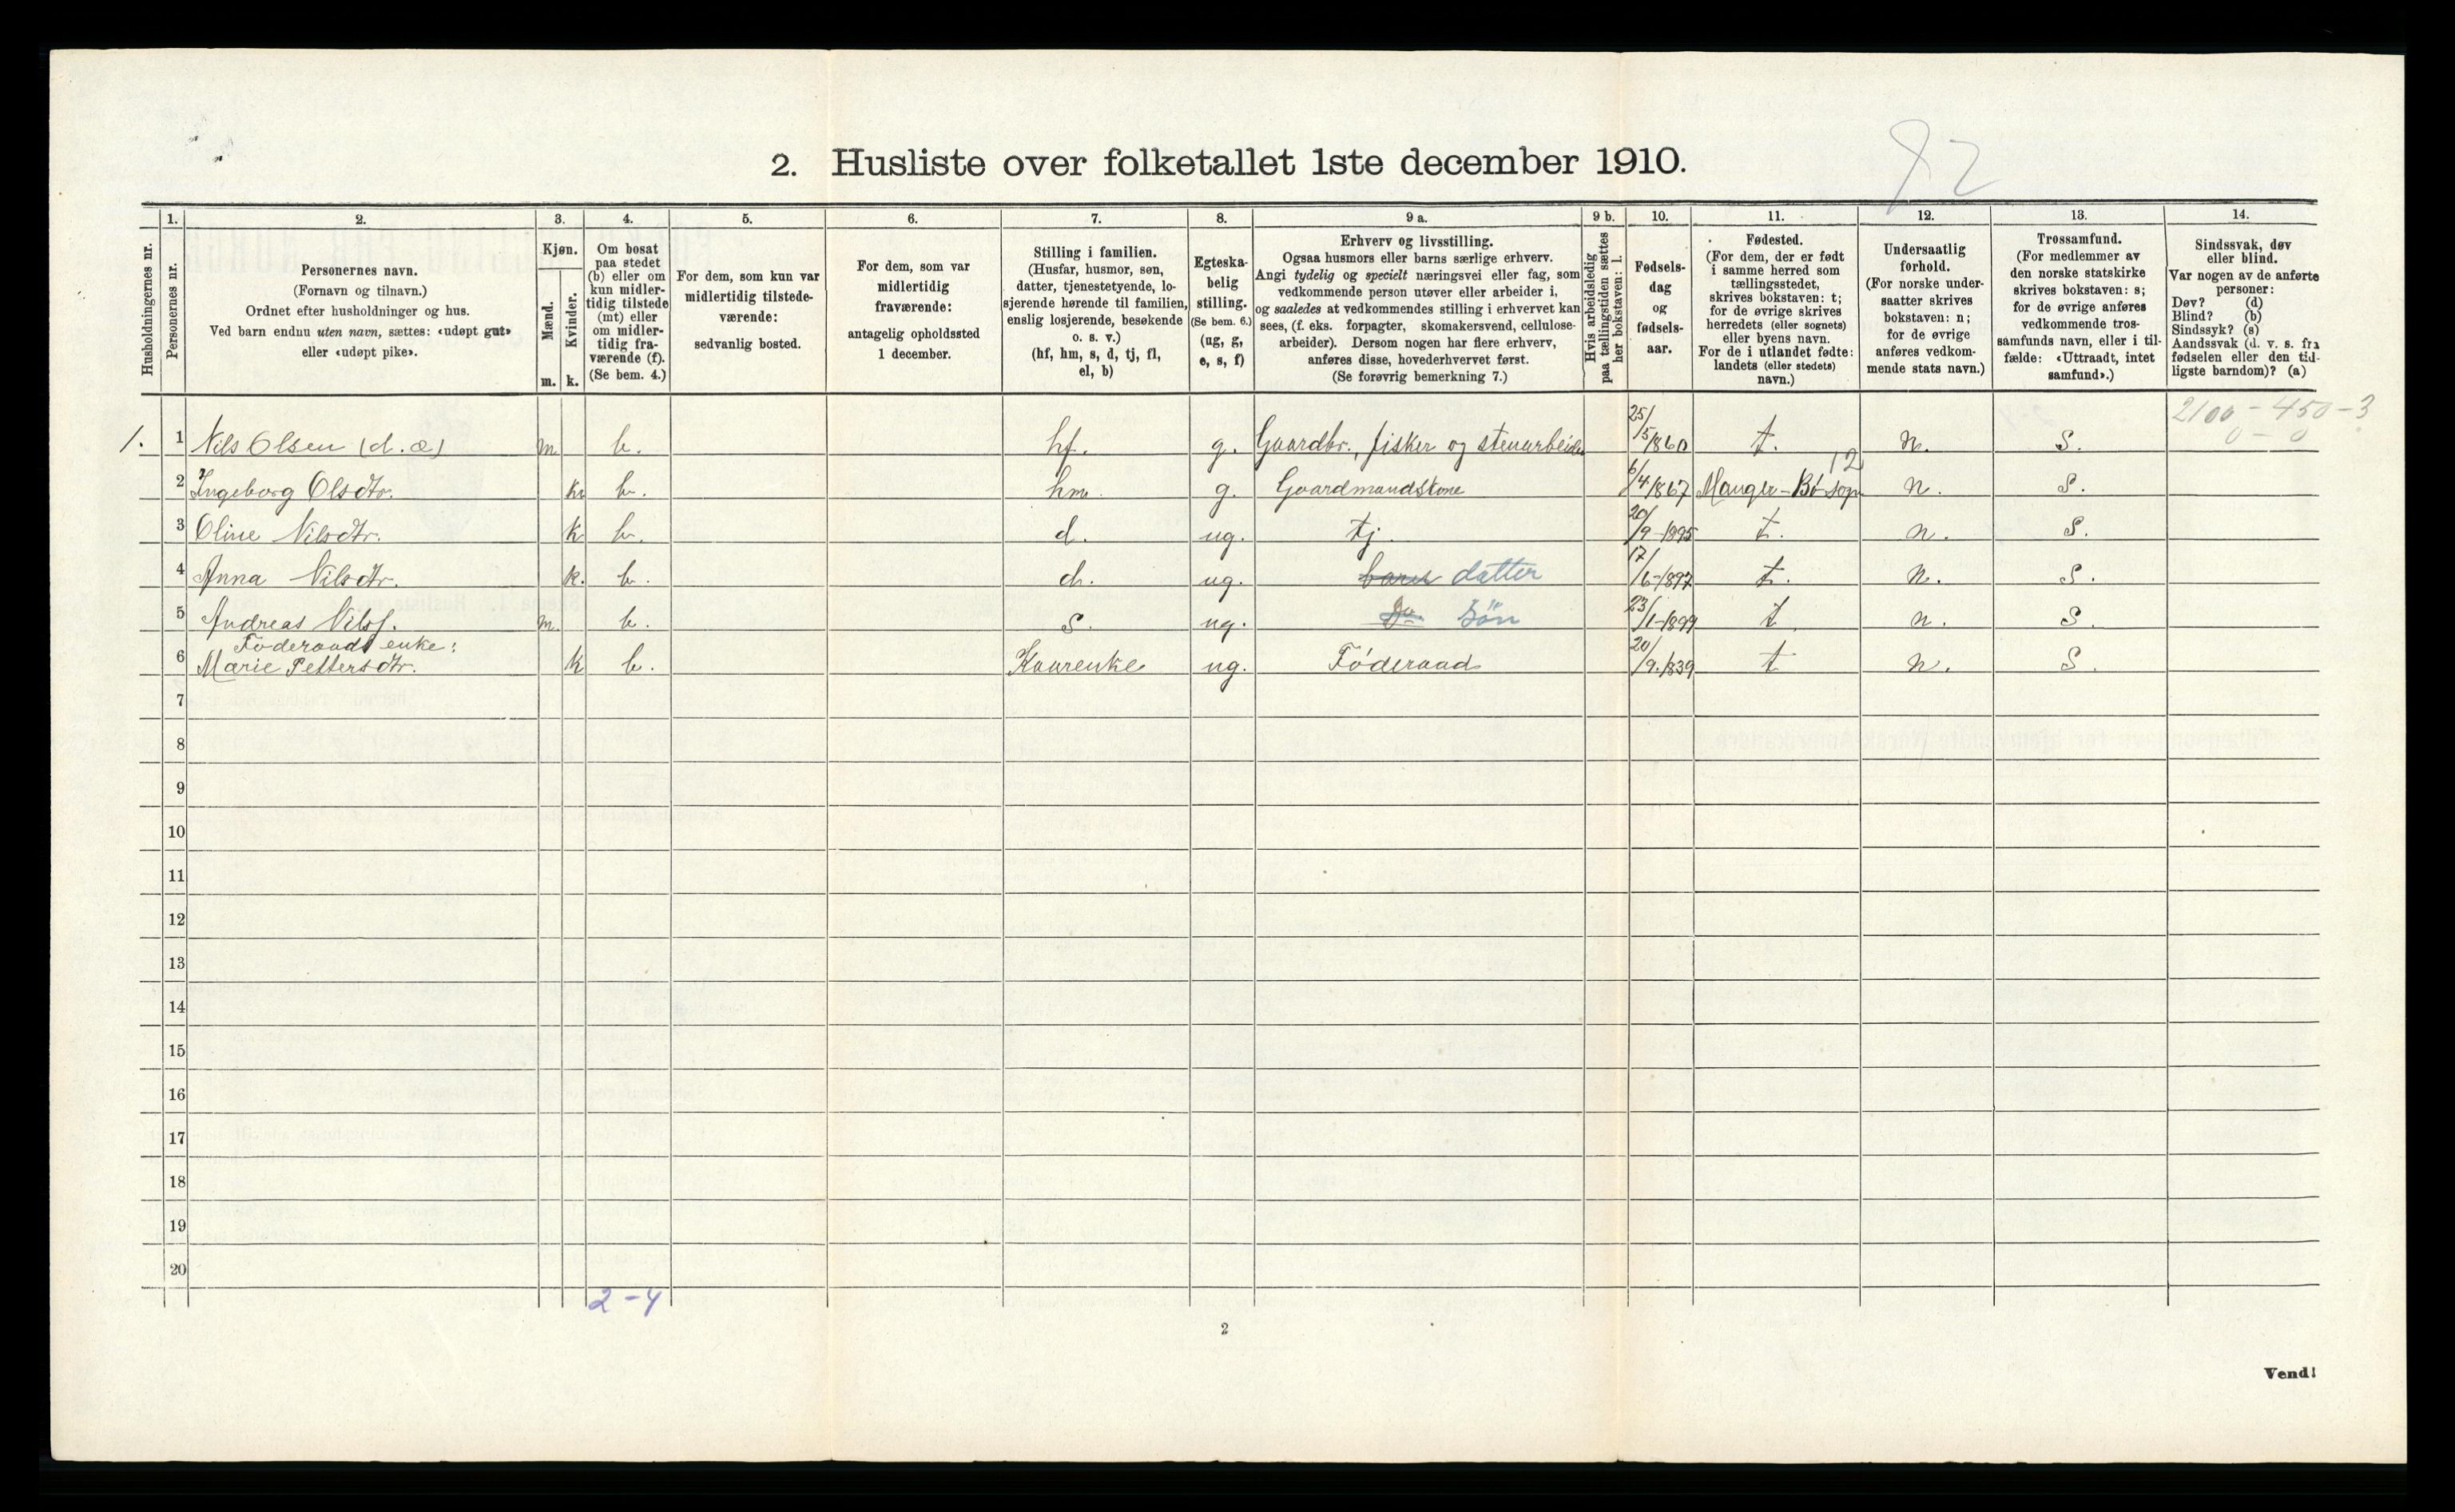 92
2. Husliste over folketallet 1ste december 1910.
Husholdningernes nr.
1. Personernes nr.
2. Personernes navn.
(Fornavn og tilnavn.)
Ordnet efter husholdninger og hus.
Ved barn endnu uten navn, sættes: «udøpt gut»
eller «udøpt pike».
3. Kjøn.
Mænd. m.
Kvinder. k.
4. Om bosat
paa stedet
(b) eller om
kun midler-
tidig tilstede
(mt) eller
om midler-
tidig fra-
værende (f).
(Se bem. 4.)
5. For dem, som kun var
midlertidig tilstede-
værende:
sedvanlig bosted.
6. For dem, som var
midlertidig
fraværende:
antagelig opholdssted
1 december.
7. Stilling i familien.
(Husfar, husmor, søn,
datter, tjenestetyende, lo-
sjerende hørende til familien,
enslig losjerende, besøkende
o. s. v.)
(hf, hm, s, d, tj, fl,
el, b)
8. Egteska-
belig
stilling.
(Se bem. 6.)
(ug, g,
e, s, f)
9 a. Erhverv og livsstilling.
Ogsaa husmors eller barns særlige erhverv.
Angi tydelig og specielt næringsvei eller fag, som
vedkommende person utøver eller arbeider i,
og saaledes at vedkommendes stilling i erhvervet kan
sees, (f. eks. forpagter, skomakersvend, cellulose-
arbeider). Dersom nogen har flere erhverv,
anføres disse, hovederhvervet først.
(Se forøvrig bemerkning 7.)
9 b. Hvis arbeidsledig
paa tællingstiden sættes
her bokstaven: l.
10. Fødsels-
dag
og
fødsels-
aar.
11. Fødested.
(For dem, der er født
i samme herred som
tællingsstedet,
skrives bokstaven: t;
for de øvrige skrives
herredets (eller sognets)
eller byens navn.
For de i utlandet fødte:
landets (eller stedets)
navn.)
12. Undersaatlig
forhold.
(For norske under-
saatter skrives
bokstaven: n;
for de øvrige
anføres vedkom-
mende stats navn.)
13. Trossamfund.
(For medlemmer av
den norske statskirke
skrives bokstaven: s;
for de øvrige anføres
vedkommende tros-
samfunds navn, eller i til-
fælde: «Uttraadt, intet
samfund».)
14. Sindssvak, døv
eller blind.
Var nogen av de anførte
personer:
Døv? (d)
Blind? (b)
Sindssyk? (s)
Aandssvak (d. v. s. fra
fødselen eller den tid-
ligste barndom)? (a)
2100 - 450 - 3
0 - 0
1. 1 Nils Olsen (d. æ) m b. hf. g. Gaardbr., fisker og stenarbeider 25/5 1860 t. n. S.
12
2 Ingeborg Olsdtr. k b. hm. g. Gaardmandskone 6/4 1867 Manger - Bø sogn n. S.
3 Oline Nilsdtr. k b. d. ug. tj. 20/9-1895 t. n. S.
4 Anna Nilsdtr. k. b. d. ug. barn datter 17/6-1897 t. n. S.
5 Andreas Nilss. m. b. s. ug. Do søn 23/1-1899 t n. S.
Føderaads enke:
6 Marie Pettersdtr. k b. Kaarenke ug. Føderaad 20/9. 1839 t n. S.
7
8
9
10
11
12
13
14
15
16
17
18
19
20
2-4
2
Vend!